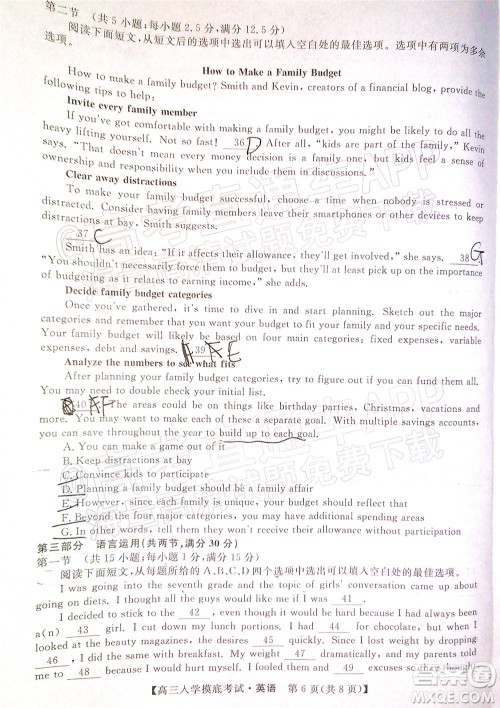 第二节 (共5小题;每小题2.5分,满分12.5分)
阅读下面短文,从短文后的选项中选出可以填入空白处的最佳选项。选项中有两项为多余
选项。
How to Make a Family Budget
How to make a family budget? Smith and Kevin, creators of a financial blog, provide the
following tips to help:
Invite every family member
If you've got comfortable with making a family budget, you might be likely to do all the
heavy lifting yourself. Not so fast! 36 D After all, "kids are part of the family," Kevin
says. "That doesn't mean every money decision is a family one, but kids feel a sense of
ownership and responsibility when you include them in discussions."
Clear away distractions
To make your family budget successful, choose a time when nobody is stressed or
distracted. Consider having family members leave their smartphones or other devices to keep
distractions at bay, Smith suggests.
37 C
Smith has an idea: "If it affects their allowance, they'll get excited," she says. 38 G
"You shouldn't necessarily bribe them, but they'll at least pick up on the importance
of budgeting as it relates to earning income," she adds.
Decide family budget categories
Once you've gathered, it's time to begin planning. Sketch out the major
categories and remember that you may want to adjust for your specific needs.
Your family budget will likely be based on four main categories: fixed expenses, variable
expenses, debt and savings. 39 E
Analyze the numbers to see what fits
After planning your family budget categories, try to figure out if you can fund them all.
You may need to double check your initial list.
40 F The areas could be things like birthday parties, Christmas, vacations and
more. You might like to make each of these a separate goal. With multiple savings accounts,
you can save throughout the year to build up to each goal.
A. You can make a game out of it
B. Keep distractions at bay
C. Convince kids to participate
D. Planning a family budget should be a family affair
E. However, since each family is unique, your budget should reflect that
F. Beyond the four major categories, you may have additional spending areas
G. In other words, tell them they won't receive their allowance without participation
第三部分 语言运用(共两节,满分30分)
第一节 (共15小题;每小题1分,满分15分)
阅读下面短文,从每题所给的A、B、C、D四个选项中选出可以填入空白处的最佳选项。
I was going into the seventh grade and the topic of girls' conversation came up about
going on diets. I decided to think about how I was 41
I decided to start 42 , even though it would be hard because I had always been
a(n) 43 girl. I cut down on the junk food. I had 44 for chocolate, but when I
looked at the beauty magazines, the desires 45 quickly. Slowly I started to like
46 , I didn't feel like I had to eat every half hour because I was bored. I drank more
【高三入学摸底考试·英语 第6页(共8页)】